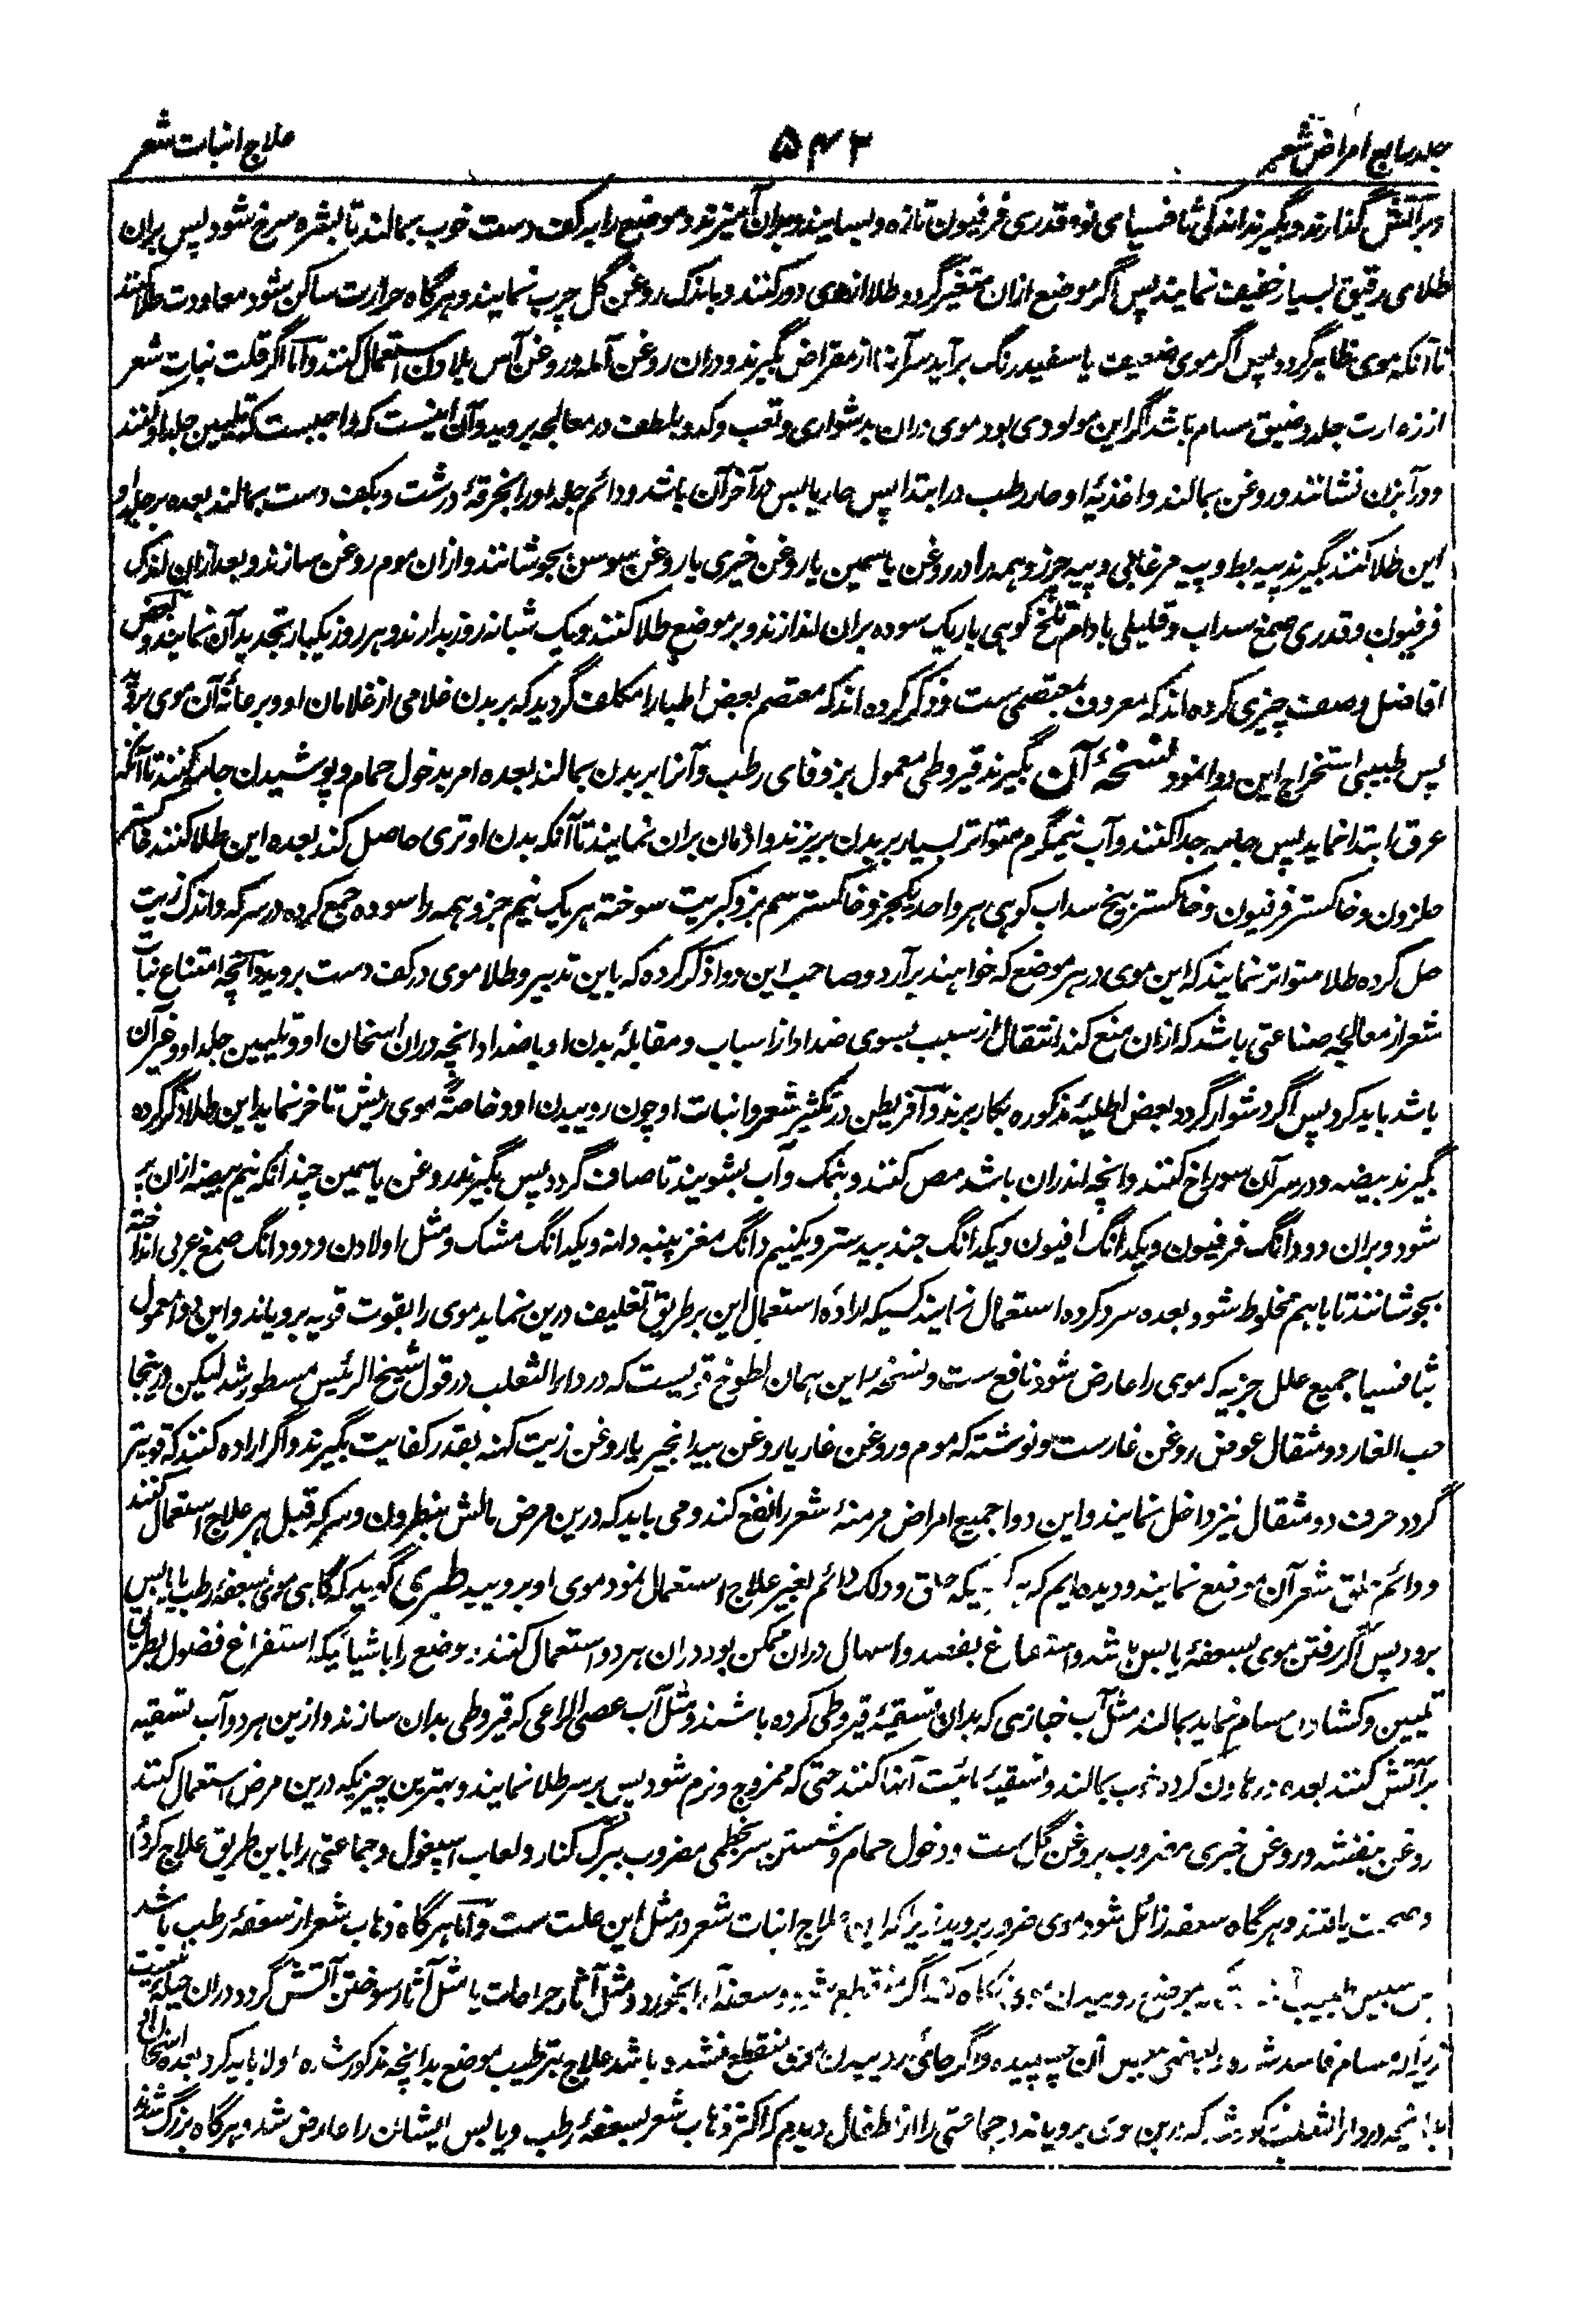 جلد سابع امراض شعر
۵۴۳
علاج انبات شعر
و بر آتش گذارند و بگیرند اندکی ثافسیای نو و قدری فرفیون تازه و بسایند و بران آمیزند و موضع را به کف دست خوب بمالند تا بشره سرخ شود پس بران
طلای رقیق بسیار خفیف نمایند پس اگر موضع ازان متغیر گردد طلا ازوی دور کنند و باندک روغن گل چرب نمایند و هرگاه حرارت ساکن شود معاودت طلا کنند
تا آنکه موی ظاهر گردد پس اگر موی ضعیف یا سفید رنگ برآید سر آنها از مقراض بگیرند و دران روغن آمله و روغن آس یا لادن استعمال کنند و اما اگر قلت نبات شعر
از جلد و ضیق مسام باشد اگر این مولودی بود موی دران بدشواری و تعب و کد و بلطف در معالجه بروید و آن اینست که واجبست که تلیین جلد او کنند
و در آبزن نشانند و روغن بمالند و اغذیۀ او حار رطب در ابتدا پس حار یابس در آخر آن باشد و دائم جلد او را بخرقۀ درشت و بکف دست بمالند بعده بر جلد او
این طلا کنند بگیرند پیه بط و پیه مرغابی و پیه خرز و همه را در روغن یاسمین یا روغن خیری یا روغن سوسن بجوشانند و ازان موم روغن سازند و بعد ازان اندک
فرفیون و قدری صمغ سداب و قلیلی بادام تلخ کوهی باریک سوده بران اندازند و بر موضع طلا کنند و یک شبانه روز بدارند و هر روز یکبار تجدید آن نمایند و بعض
افاضل وصف چیزی کرده اند که معروف بمعتصمی ست و ذکر کرده اند که معتصم بعض اطبا را مکلف گردید که بر بدن غلامی از غلامان او و بر عانۀ آن موی بروید
پس طبیبی استخراج این دوا نمود نسخۀ آن بگیرند قیروطی معمول بزوفای رطب و آنرا بر بدن بمالند بعده امر بدخول حمام و پوشیدن جامه کنند تا آنکه
عرق ابتدا نماید پس جامه جدا کنند و آب نیمگرم متواتر بسیار بر بدن بریزند و ادمان بران نمایند تا آنکه بدن او تری حاصل کند بعده این طلا کنند خاکستر
حلزون و خاکستر فرفیون و خاکستر بیخ سداب کوهی هر واحد یکجزو خاکستر سم بز و کبریت سوخته هر یک نیم جز و همه را سوده جمع کرده در سرکه و اندک زیت
حل کرده طلا متواتر نمایند که این موی در هر موضع که خواهند برآرد و صاحب این دوا ذکر کرده که باین تدبیر و طلا موی در کف دست بروید و آنچه امتناع نبات
شعر از معالجه صناعتی باشد که ازان منع کند انتقال از سبب بسوی ضد او از اسباب و مقابلۀ بدن او باضداد آنچه دران استخان او و تلیین جلد او و غیر آن
باشد باید کرد پس اگر دشوار گردد بعض اطلیۀ مذکوره بکار برند و آفریطن در تکثیر شعر و انبات او چون روییدن او و خاصةً موی ریش تاخر نماید این طلا ذکر کرده
بگیرند بیضه و در سر آن سوراخ کنند و آنچه اندران باشد مص کنند و بنمک و آب بشویند تا صاف گردد پس بگیرند روغن یاسمین چندانکه نیم بیضه ازان پر
شود و بران دو دانگ فرفیون و یکدانگ افیون و یکدانگ جند بیدستر و یکنیم دانگ مغز پنبه دانه و یکدانگ مشک و مثل او لادن و دو دانگ صمغ عربی انداخته
بجوشانند تا باهم مخلوط شود بعده سرد کرده استعمال نمایند کسیکه ارادۀ استعمال این بر طریق تغلیف درین نماید موی را بقوت قویه برویاند و این دوا معمول
بثافسیا جمیع علل جزیه که موی را عارض شود نافع ست و نسخه این همان لطوخ قویست که در داء الثعلب در قول شیخ الرئیس مسطور شد لیکن درینجا
حب الغار دو مثقال عوض روغن غارست و نوشته که موم و روغن غار یا روغن بیدانجیر یا روغن زیت کهنه بقدر کفایت بگیرند و اگر اراده کنند که قویتر
گردد حرف دو مثقال نیز داخل نمایند و این دوا جمیع امراض مزمنۀ شعر را نفع کند و می باید که درین مرض مالش بنطرون و سرکه قبل هر علاج استعمال کنند
و دائم حلق شعر آن موضع نمایند و دیده ایم که حلق و دلک دائم بغیر علاج استعمال نمود موی او برویید طبری گوید که گاهی موی بسعفۀ رطب یا یابس
برود پس اگر رفتن موی بسعفۀ یابس باشد و استفراغ بفصد و اسهال دران ممکن بود دران هر دو استعمال کنند و موضع را باشیائیکه استفراغ فضول بطریق
تلیین و کشادن مسام نماید بمالند مثل آب خبازی که بدان تسقیۀ قیروطی کرده باشند و مثل آب عصی الراعی که قیروطی بدان سازند و ازین هر دو آب تسقیه
بر آتش کنند بعده در هاون کرده خوب بمالند و تسقیۀ آنها کنند حتی که ممزوج و نرم شود پس بر سر طلا نمایند و بهترین چیزیکه درین مرض استعمال کنند
روغن بنفشه و روغن خیری مضروب بروغن گل ست و دخول حمام و شستن سر بخطمی مضروب ببرگ کنار و لعاب اسپغول و جماعتی را باین طریق علاج کردم
و صحت یافتند و هرگاه سعفه زائل شود موی ضرور بروید زیراکه این علاج انبات شعر در مثل این علت ست و اما هرگاه ذهاب شعر از سعفۀ رطب باشد
پس طبیب موضع روییدن موی نگاه کند اگر منقطع شده و سعفه آنرا بخورد و مثل آثار جراحات یا مثل آثار سوختن آتش گردد دران حیله نیست
زیرا که مسام فاسد شده و بعضی ببعض آن چسپیده و اگر جای روییدن موی منقطع نشده باشد علاج بترطیب موضع بدانچه مذکور شد اولا باید کرد بعده
بدانچه در داء الثعلب مذکور شد که درین موی برویاند و جماعتی را از اطفال دیدم که اکثر ذهاب شعر بسعفۀ رطب و یابس ایشان را عارض شد و هرگاه بزرگ شدند